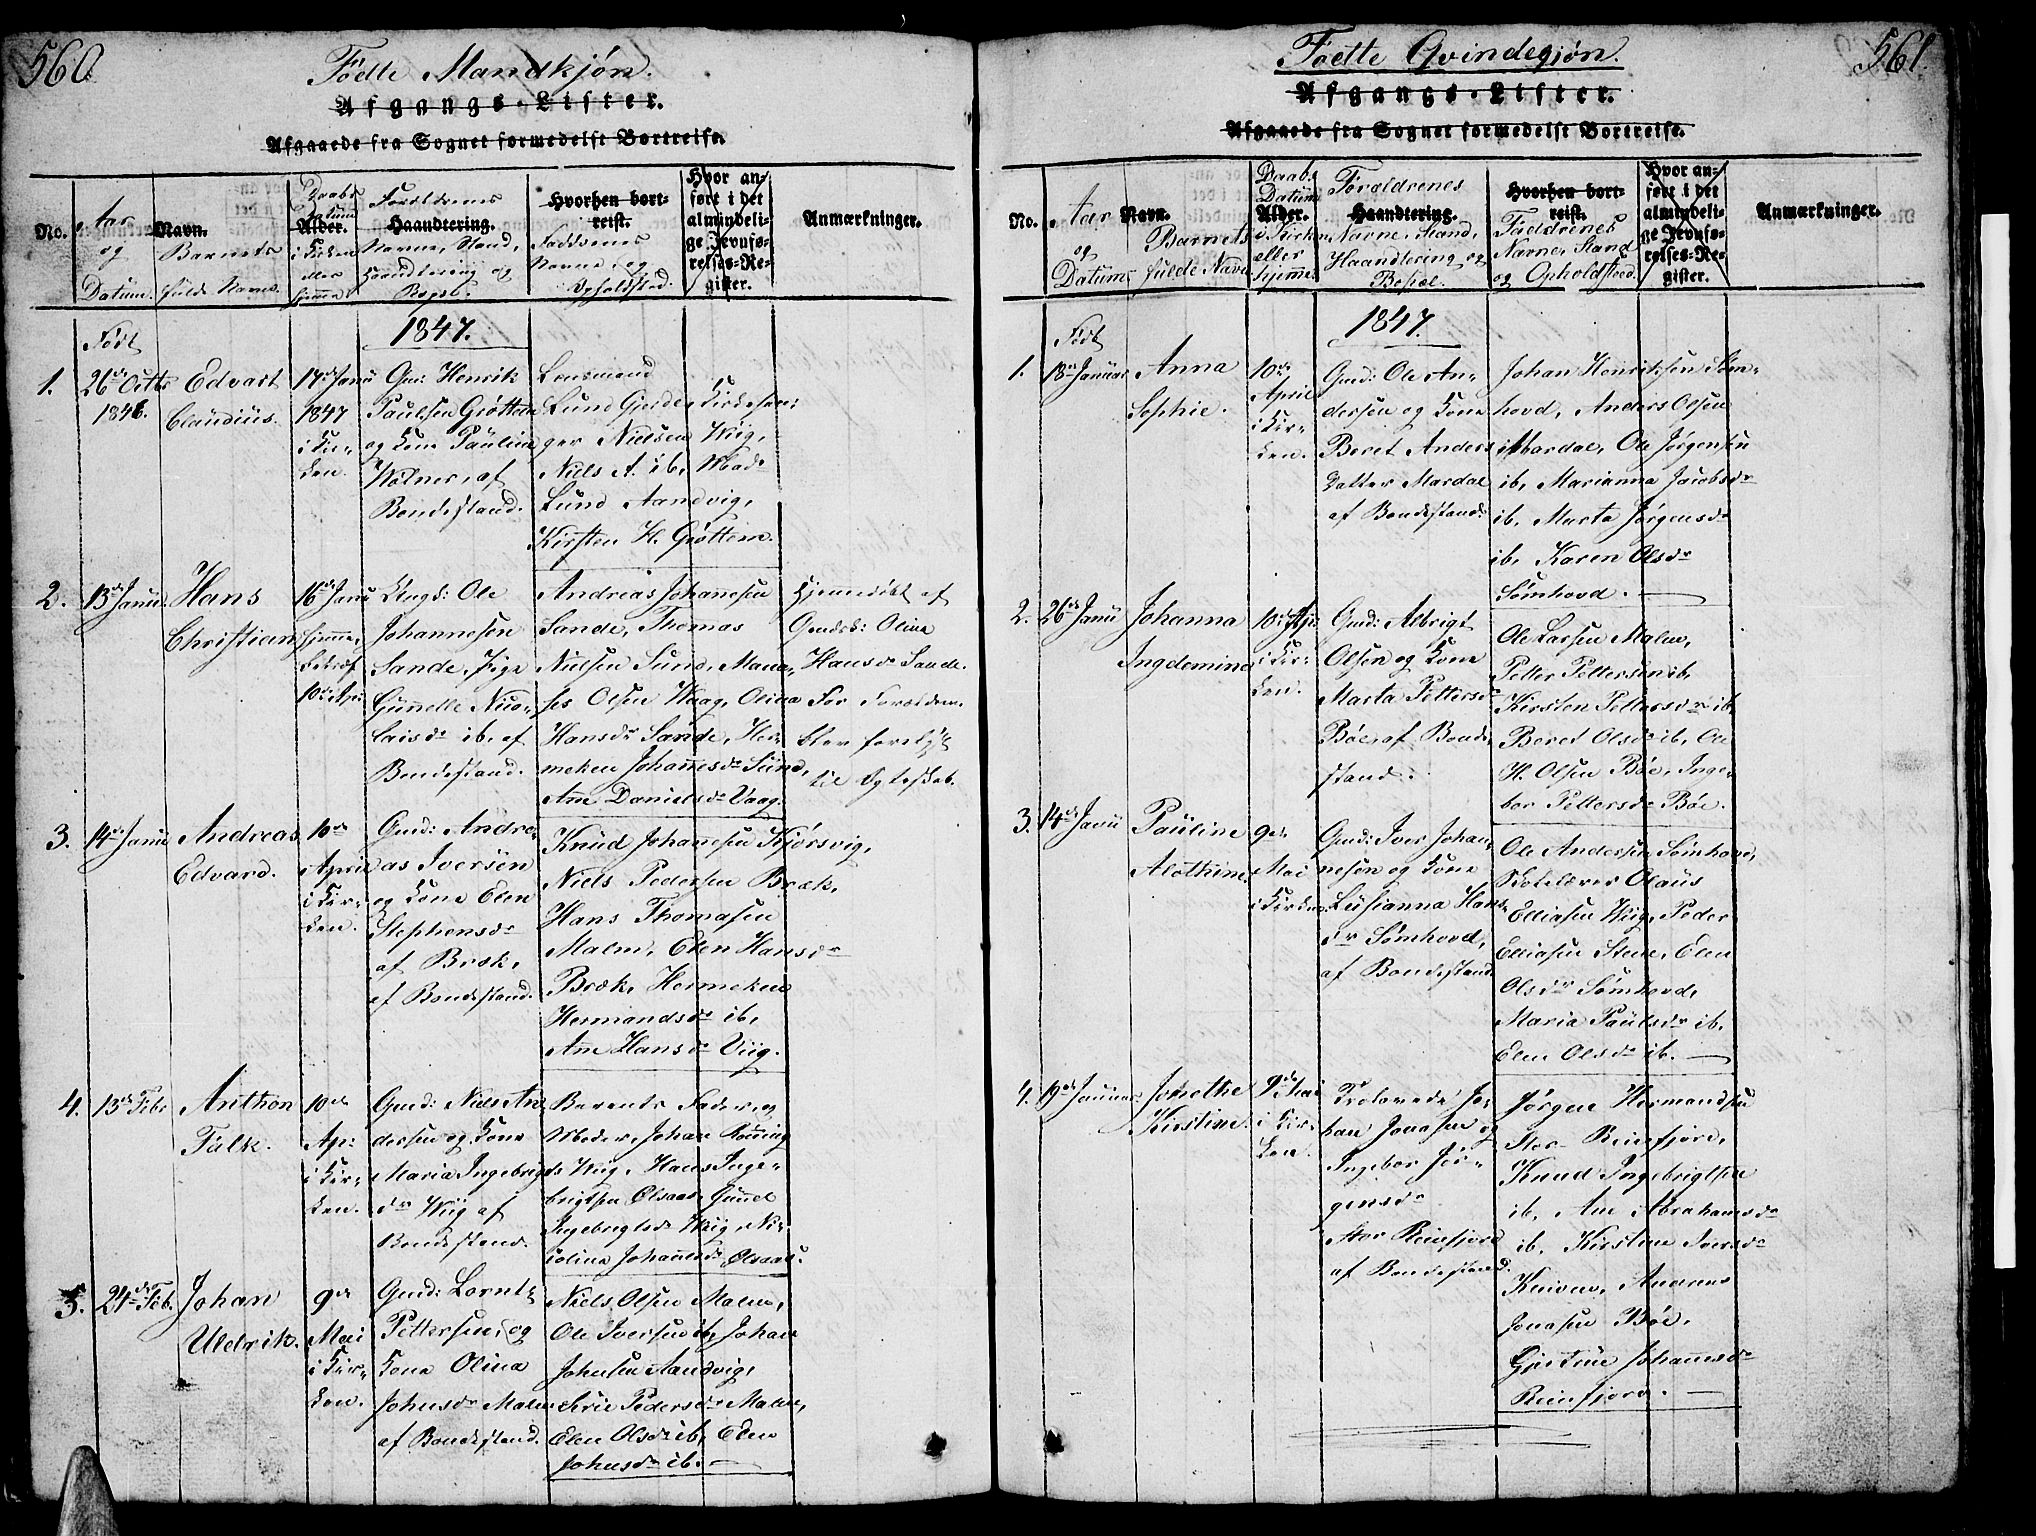 560
Födte Mandkjön.
Afgangs-Lister.
Afgaaede fra Sognet formedelst Bortreise.
No.
Aar
og
Datum.
Navn.
Barnets
fulde Navn.
Daabs
Datum
Alder.
i Kirken
eller
hjemme
Forældrenes
Haandtering.
Navne, Stand,
Haandtering og
Bopæl.
Hvorhen bort-
reist.
Faddernes
Navne, og
Opholdsted.
Hvor an-
ført i det
almindeli-
ge Jevnfø-
relses-Re-
gister.
Anmærkninger.
Født
1847.
1.
26de Octbr
1846.
Edvart
Claudius.
17de Janu
1847
i Kir-
ken.
Gm: Henrik
Paulsen Grøttem
og Kone Paulina
Wolner, af
Bondestand.
Lensmand
Lund Gjerde, Kirkesan-
ger Nielsen Wiig,
Niels A. ib, Mad:
Lund Aandvig,
Kirsten H. Grøttem.
2.
13de Janu
Hans
Christian
16de Janu
hjemme,
10de Apr
Ungs: Ole
Johannesen
Sande, Pige
Gunnelle Nico-
laisdr ib, af
Bondestand.
Andreas Johannesen
Sande, Thomas
Nielsen Sund, Mana-
ses Olsen Waag, Olina
Hansdr Sande, Her-
meken Johannesdr Sund,
Ane Danielsdr Vaag.
Hjemmedøbt af
Gaardsk: Olina
Hansdr Sande.
For Forældrene
blev forelyst
til Egteskab.
3.
14de Janu
Andreas
Edvard.
10de
April
i Kir-
ken.
Gmd: Andre-
as Iversen
og Kone Elen
Stephensdr
af Bræk,
af Bondestand.
Knud Johannesen Kjørsvig,
Niels Pedersen Bræk,
Hans Thomasen
Malm, Elen Hansdr
Bræk, Hermeken
Hermandsdr ib,
Ane Hansdr Viig.
4.
13de Febr
Anthon
Falk.
10de
Ap:
i Kir-
ken.
Gmd: Niels An-
dersen og Kone
Maria Ingebrigts
dr Wiig af
Bondestand.
Barnets Fader, og
Moder, Johan Rønning
Wiig, Hans Inge-
brigtsen Olsaas, Gunnel
Ingebrigtsdr Wiig, Ni-
colina Johannesdr Olsaas.
5.
24de Feb.
Johan
Uldrik.
9de
Mai
i Kir-
ken.
Gmd: Lorntz
Pettersen, og
Kone Olina
Johnsdr Malm
af Bondestand.
Niels Olsen Malm,
Ole Iversen ib, Johan
Johnsen Aandvig,
Sirie Pedersdr Malm,
Elen Olsdr ib, Elen
Johnsdr ib. —
561.
Fødte Qvindegjøn.
Afgangs-Lister.
Afgaaede fra Sognet formedelst Bortreise.
No.
Aar
og
Datum
Navn.
Barnets
fulde Navn
Daabs
Datum
Alder.
i Kirken
eller
hjemme
Forældrenes
Haandtering.
Navne, Stand,
Haandtering og
Bopæl.
Hvorhen bort-
reist.
Faddrenes
Navne, Stand
og Opholdsted.
Hvor an-
ført i det
almindeli-
ge Jevnfø-
relses-Re-
gister.
Anmærkninger.
Født
1847.
1.
18de Januar
Anna
Sophie.
10de
April
i Kir-
ken.
Gmd: Ole An-
dersen og Kone
Beret Anders
datter Mardal
af Bondestand.
Johan Henriksen Søm-
hovd, Anders Olsen
Mardal, Ole Jørgensen
ib, Marianna Jacobsdr
ib, Marta Jørgensdr
ib, Karen Olsdr
Sømhovd. —
2.
26de Janu
Johanna
Ingdemina
10de Apr
i Kir-
ken.
Gmd: Albrigt
Olsen og Kone
Marta Pettersdr
Bøe, af Bonde-
stand.
Ole Larsen Malm,
Petter Pettersen ib,
Kirsten Pettersdr ib,
Beret Olsdr ib, Ole
H. Olsen Bøe, Inge-
bor Pettersdr Bøe.
3.
14de Janu
Pauline
Alothine
9de
Mai
i Kirken.
Gmd: Iver Johan-
nesen og Kone
Lusianna Hans
dr Sømhovd,
af Bondestand.
Ole Andersen Sømhovd,
Skolelærer Olaus
Elliasen Wiig, Peder
Elliasen Stene, Elen
Olsdr Sømhovd,
Maria Paulsdr ib,
Elen Olsdr ib. —
4.
19de Januar
Jonethe
Kirstine.
9de Mai
i Kir-
ken.
Trolovede Jo-
han Jonasen og
Ingebor Jør-
gensdr
Stor Reinsfjord
af Bondestand.
Jørgen Hermandsen
Stor Reinsfjord,
Knud Ingebrigtsen
ib, Ane Abrahamsdr
ib, Kirstine Iversdr
Kniven, Andreas
Jonasen Bøe,
Gjertrue Johannesdr
Reinsfjord. —